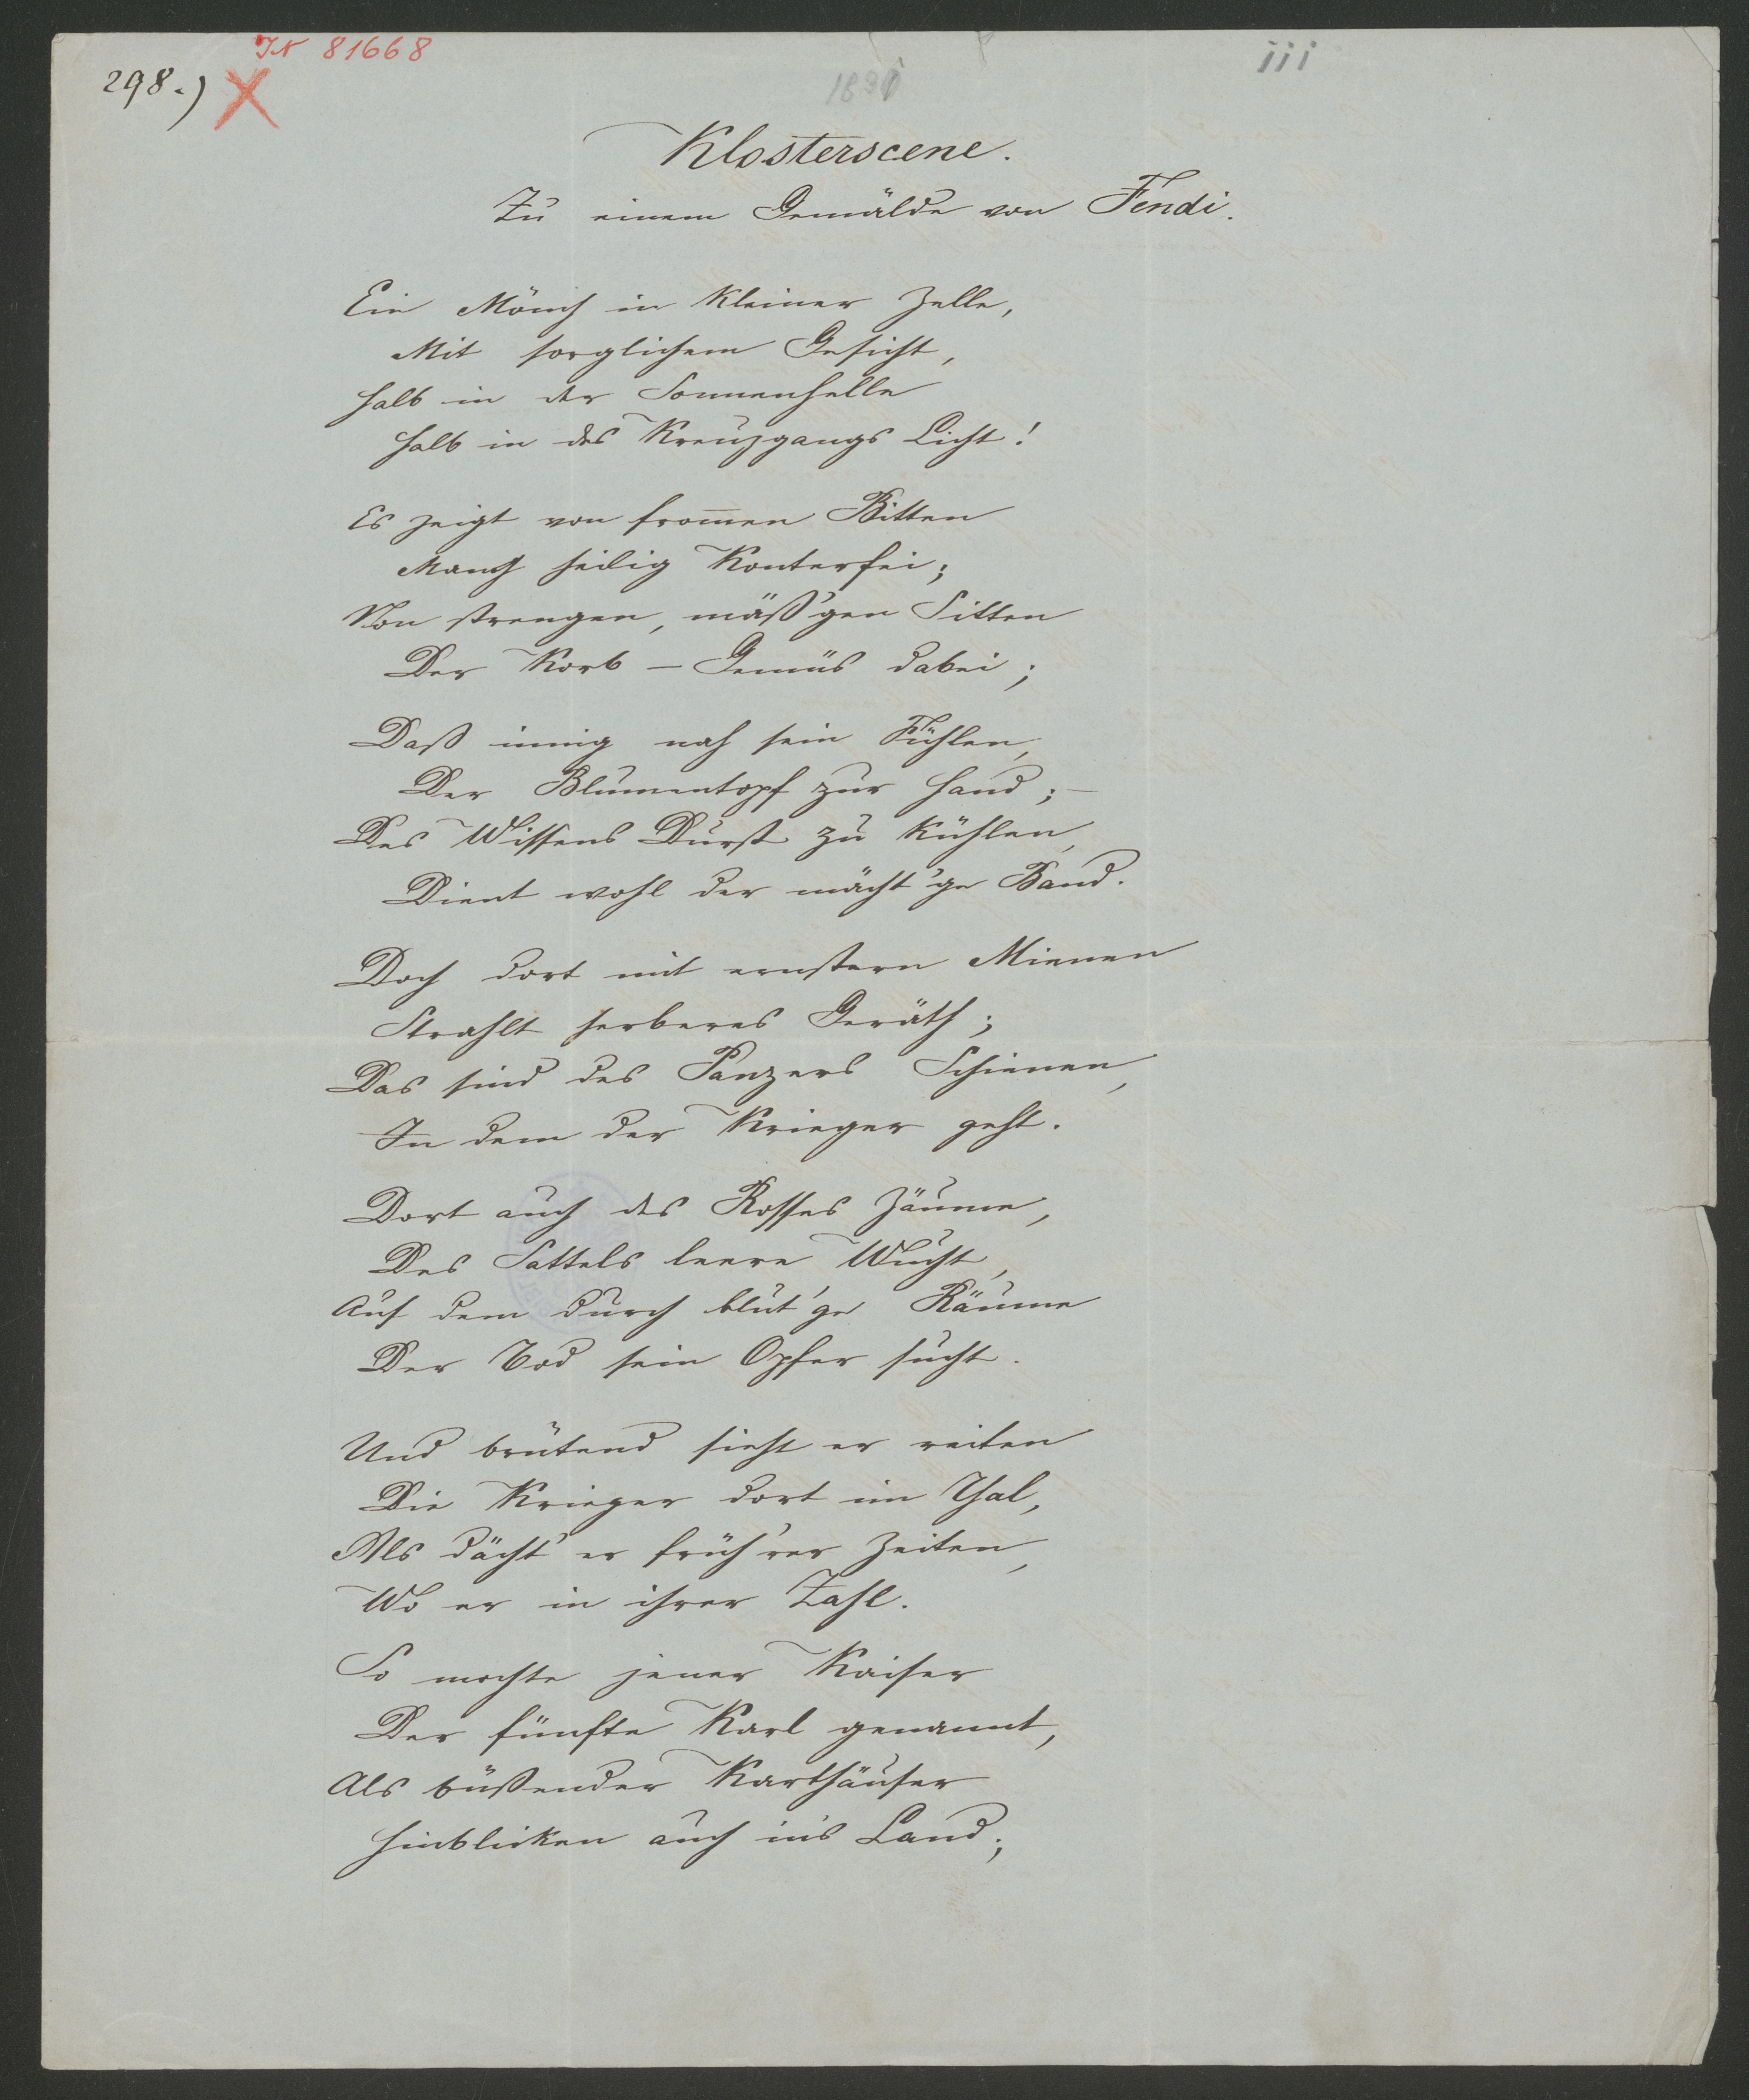 IN 81668
298.)
iii
Klosterscene.
Zu einem Gemälde von Fendi.
Ein Mönch in kleiner Zelle,
Mit sorglichem Gesicht,
Halb in der Sonnenhelle
Halb in des Kreuzgangs Licht!
Es zeigt von from̅en Bitten
Manch heilig Konterfei;
Von strengen, mäß'gen Sitten
Der Korb – Gemüs dabei;
Daß innig noch sein Fühlen,
Der Blumentopf zur Hand; –
Des Wissens Durst zu kühlen,
Dient wohl der mächt'ge Band.
Doch dort mit ernstern Mienen
Strahlt herberes Geräth;
Das sind des Panzers Schienen,
In dem der Krieger geht.
Dort auch des Rosses Zäume,
Des Sattels leere Wucht,
Auf dem durch blut'ge Räume
Der Tod sein Opfer sucht.
Und brütend sieht er reiten
Die Krieger dort im Thal,
Als dächt' er früh'rer Zeiten,
Wo er in ihrer Zahl.
So mochte jener Kaiser
Der fünfte Karl genannt,
Als büßender Karthäuser
Hinblicken auch in's Land;